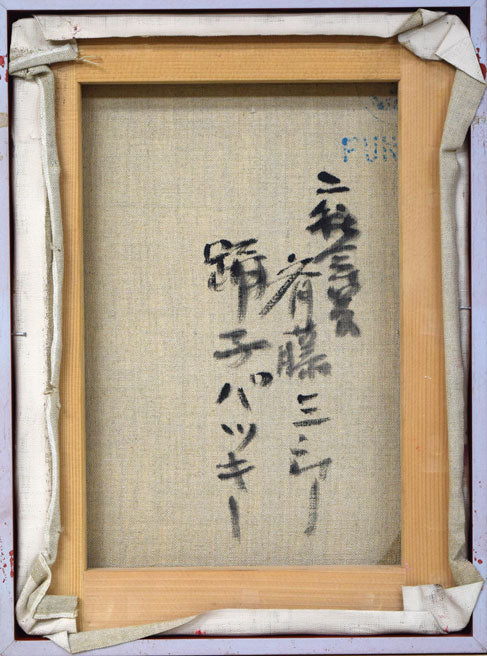 二科会員
斉藤三郎
踊子パツキー
FUN